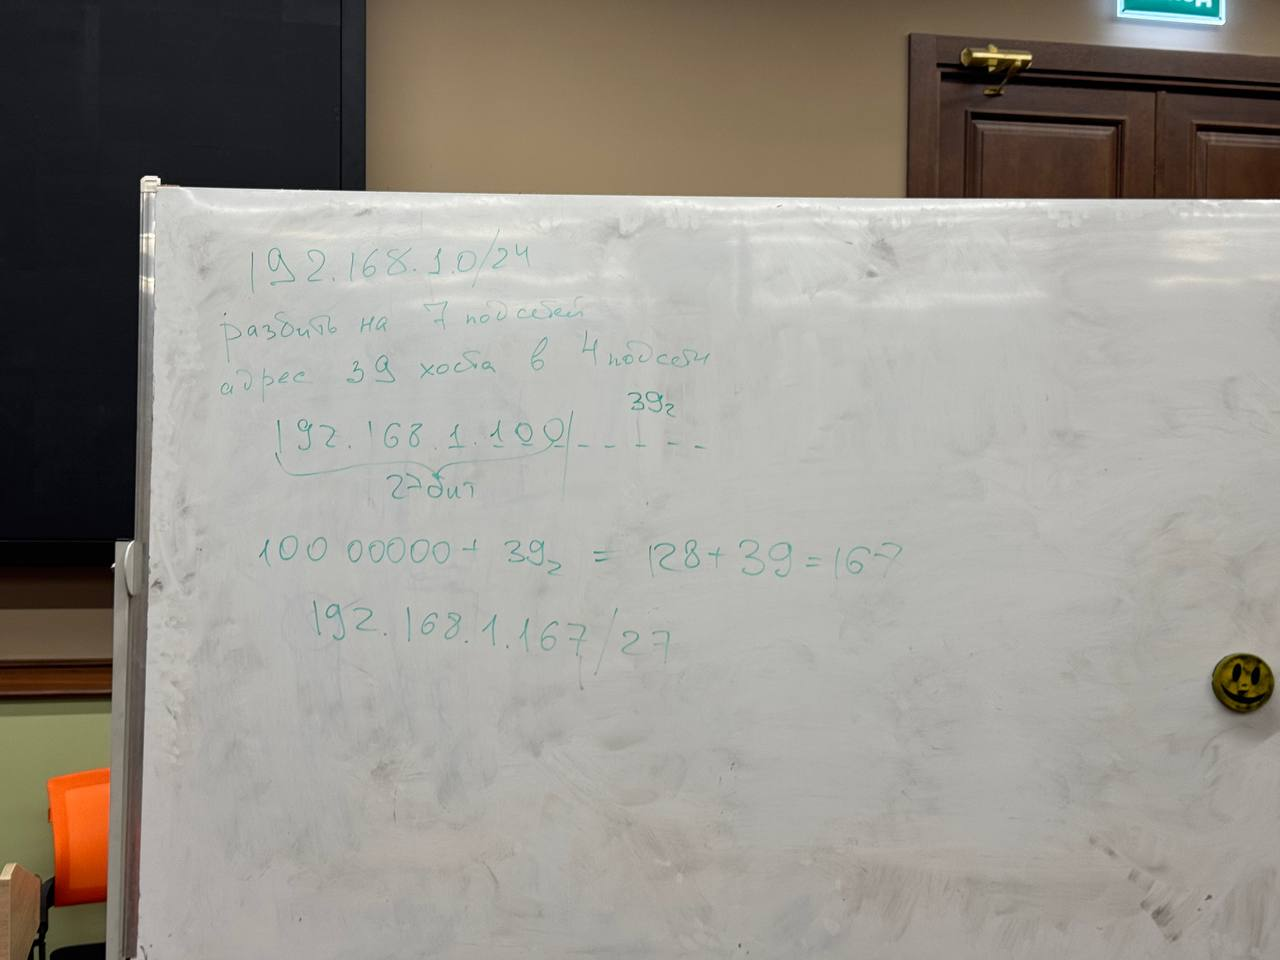 192.168.1.0/24
разбить на 7 подсетей
адрес 39 хоста в 4 подсети
39₂
192.168.1.100/_ _ _ _ _
27 бит
100 00000 + 39₂ = 128 + 39 = 167
192.168.1.167/27